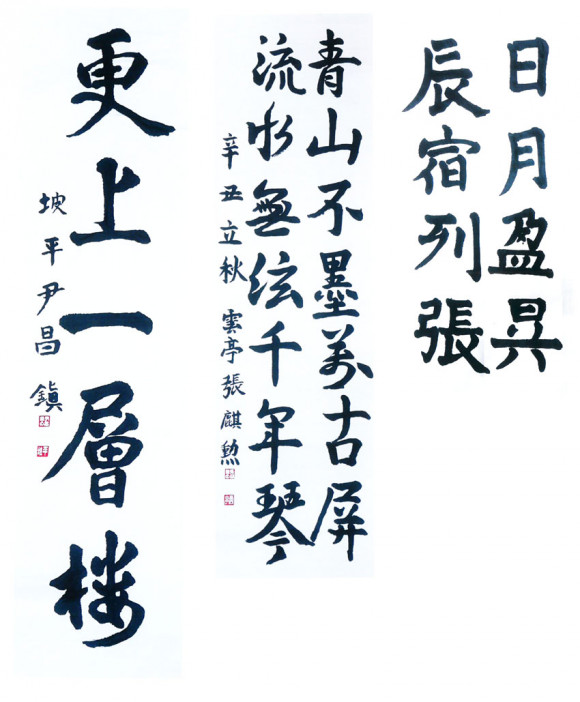 日月盈昃
辰宿列張
青山不墨萬古屏
流水無絃千年琴
辛丑立秋 雲亭張麒勲
更上一層楼
坡平尹昌鎭